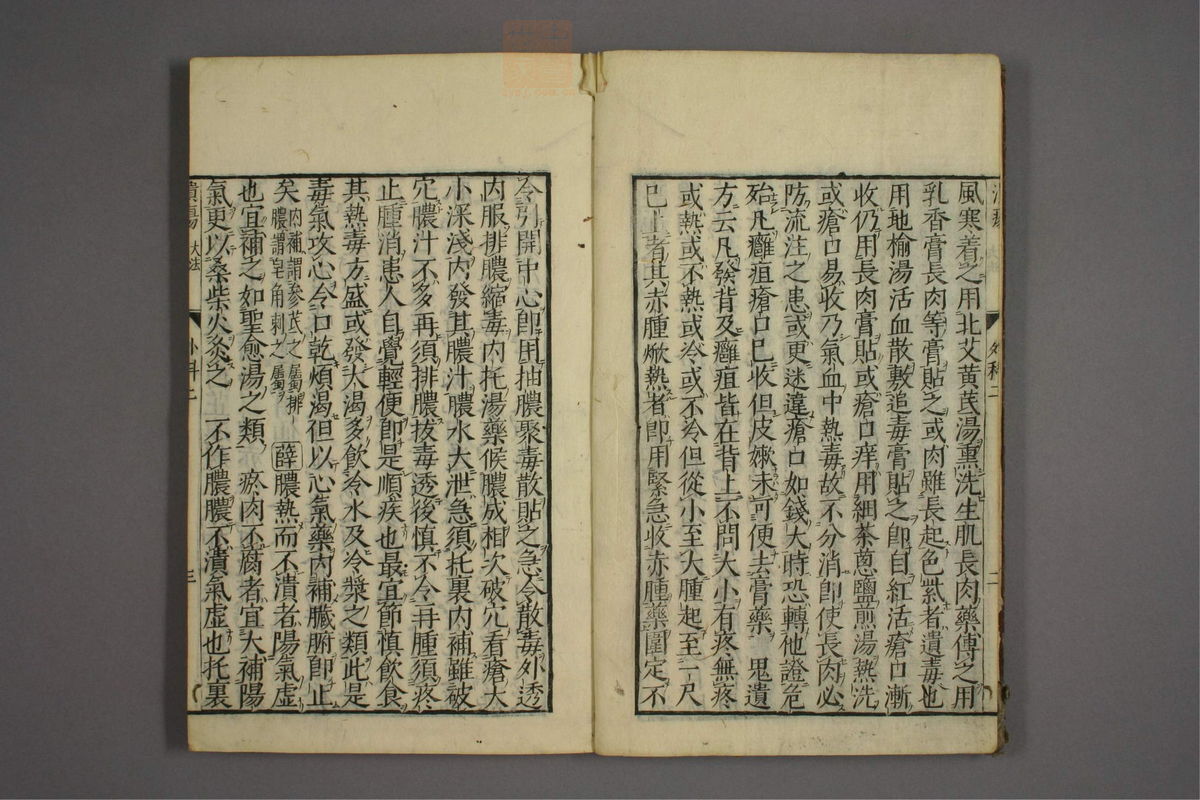 風寒着之用北艾黄芪湯熏洗生肌長肉藥傅之用
乳香膏長肉等膏貼之或肉雖長起色紫者遺毒也
用地榆湯活血散敷追毒膏貼之卽自紅活瘡口漸
收仍用長肉膏貼或瘡口痒用細茶葱鹽煎湯熱洗
或瘡口易收乃氣血中熱毒故不分消卽使長肉必
防流注之患或更迷違瘡口如錢大時恐轉他證危
殆凡癰疽瘡口已收但皮嫩未可便去膏藥　鬼遺
方云凡發背及癰疽皆在背上不問大小有疼無疼
或熱或不熱或冷或不冷但從小至大腫起至一尺
已上者其赤腫焮熱者卽用緊急收赤腫藥圍定不
外科二
二
令引開中心卽用抽膿聚毒散貼之急令散毒外透
内服排膿縮毒内托湯藥候膿成相次破穴看瘡大
小深淺内發其膿汁膿水大泄急須托裏内補雖破
穴膿汁不多再須排膿拔毒透後慎不令再腫須疼
止腫消患人自覺輕便卽是順疾也最宜節慎飲食
其熱毒方盛或發大渴多飲冷水及冷漿之類此是
毒氣攻心令口乾煩渴但以心氣藥内補臟腑卽止
矣内補謂參芪之屬排膿謂皂角刺之屬　薛膿熱而不潰者陽氣虛
也宜補之如聖愈湯之類　瘀肉不腐者宜大補陽
氣更以桑柴火灸之　不作膿膿不潰氣虛也托裏
潰瘍大法
外科二
三